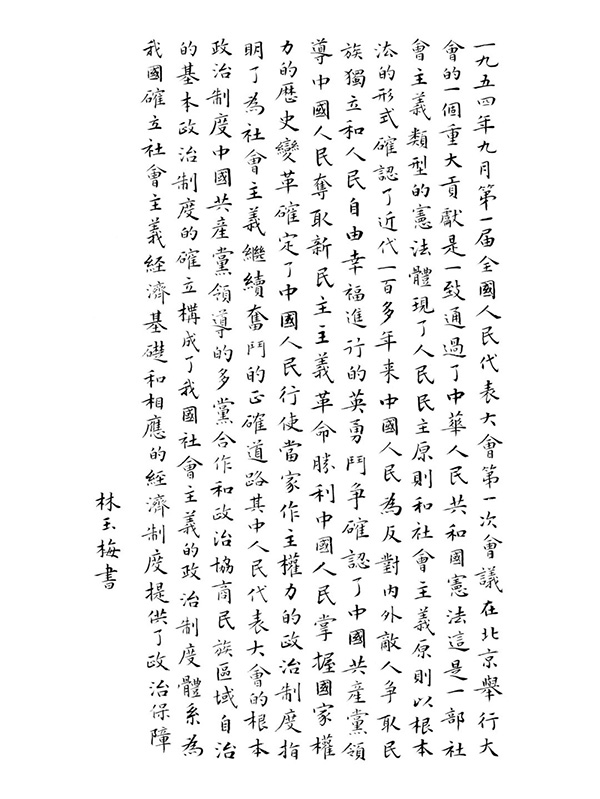 一九五四年九月第一届全國人民代表大會第一次會議在北京舉行大
會的一個重大貢獻是一致通過了中華人民共和國憲法這是一部社
會主義類型的憲法體現了人民民主原則和社會主義原則以根本
法的形式確認了近代一百多年来中國人民為反對内外敵人争取民
族獨立和人民自由幸福進行的英勇鬥争確認了中國共產黨領
導中國人民奪取新民主主義革命勝利中國人民掌握國家權
力的歷史變革確定了中國人民行使當家作主權力的政治制度指
明了為社會主義繼續奮鬥的正確道路其中人民代表大會的根本
政治制度中國共產黨領導的多黨合作和政治協商民族區域自治
的基本政治制度的確立構成了我國社會主義的政治制度體系為
我國確立社會主義經濟基礎和相應的經濟制度提供了政治保障
林玉梅書